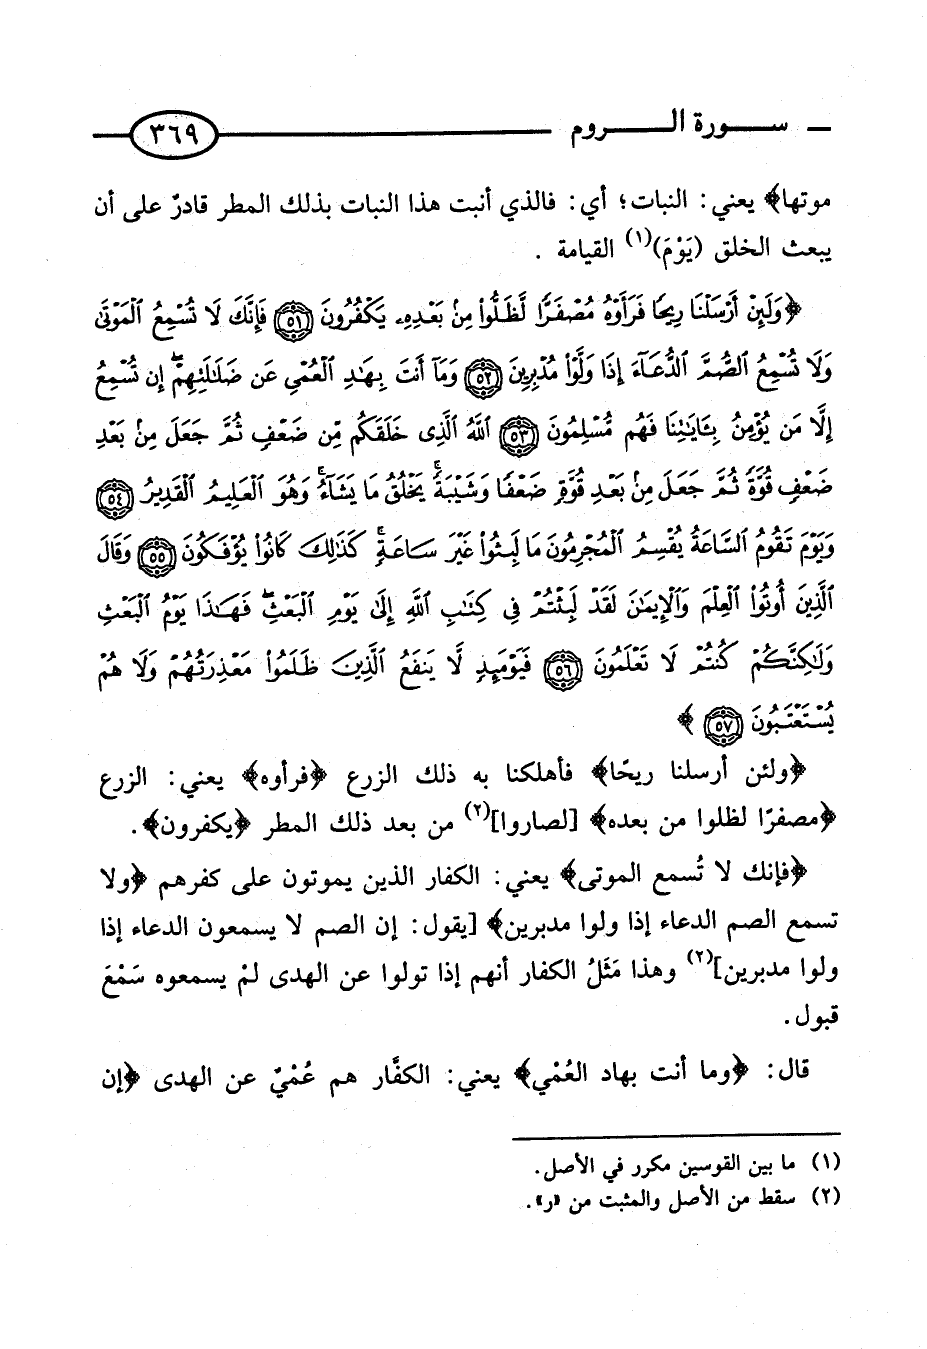 سورة الروم ٣٦٩
موتها﴾ يعني: النبات؛ أي: فالذي أنبت هذا النبات بذلك المطر قادرٌ على أن
يبعث الخلق (يَوْمَ)(١) القيامة .
﴿وَلَئِنْ أَرْسَلْنَا رِيحًا فَرَأَوْهُ مُصْفَرًّا لَّظَلُّوا۟ مِنۢ بَعْدِهِۦ يَكْفُرُونَ ٥١ فَإِنَّكَ لَا تُسْمِعُ ٱلْمَوْتَىٰ
وَلَا تُسْمِعُ ٱلصُّمَّ ٱلدُّعَآءَ إِذَا وَلَّوْا۟ مُدْبِرِينَ ٥٢ وَمَآ أَنتَ بِهَٰدِ ٱلْعُمْىِ عَن ضَلَٰلَتِهِمْ ۖ إِن تُسْمِعُ
إِلَّا مَن يُؤْمِنُ بِـَٔايَٰتِنَا فَهُم مُّسْلِمُونَ ٥٣ ٱللَّهُ ٱلَّذِى خَلَقَكُم مِّن ضَعْفٍ ثُمَّ جَعَلَ مِنۢ بَعْدِ
ضَعْفٍ قُوَّةً ثُمَّ جَعَلَ مِنۢ بَعْدِ قُوَّةٍ ضَعْفًا وَشَيْبَةً ۚ يَخْلُقُ مَا يَشَآءُ ۖ وَهُوَ ٱلْعَلِيمُ ٱلْقَدِيرُ ٥٤
وَيَوْمَ تَقُومُ ٱلسَّاعَةُ يُقْسِمُ ٱلْمُجْرِمُونَ مَا لَبِثُوا۟ غَيْرَ سَاعَةٍ ۚ كَذَٰلِكَ كَانُوا۟ يُؤْفَكُونَ ٥٥ وَقَالَ
ٱلَّذِينَ أُوتُوا۟ ٱلْعِلْمَ وَٱلْإِيمَٰنَ لَقَدْ لَبِثْتُمْ فِى كِتَٰبِ ٱللَّهِ إِلَىٰ يَوْمِ ٱلْبَعْثِ ۖ فَهَٰذَا يَوْمُ ٱلْبَعْثِ
وَلَٰكِنَّكُمْ كُنتُمْ لَا تَعْلَمُونَ ٥٦ فَيَوْمَئِذٍ لَّا يَنفَعُ ٱلَّذِينَ ظَلَمُوا۟ مَعْذِرَتُهُمْ وَلَا هُمْ
يُسْتَعْتَبُونَ ٥٧﴾
﴿ولئن أرسلنا ريحًا﴾ فأهلكنا به ذلك الزرع ﴿فرأوه﴾ يعني: الزرع
﴿مصفرًا لظلوا من بعده﴾ [لصاروا](٢) من بعد ذلك المطر ﴿يكفرون﴾.
﴿فإنك لا تُسمع الموتى﴾ يعني: الكفار الذين يموتون على كفرهم ﴿ولا
تسمع الصم الدعاء إذا ولوا مدبرين﴾ [يقول: إن الصم لا يسمعون الدعاء إذا
ولوا مدبرين](٢) وهذا مَثَلُ الكفار أنهم إذا تولوا عن الهدى لمْ يسمعوه سَمْعَ
قبول.
قال: ﴿وما أنت بهاد العُمْي﴾ يعني: الكفَّار هم عُمْيٌ عن الهدى ﴿إن
(١) ما بين القوسين مكرر في الأصل.
(٢) سقط من الأصل والمثبت من «ر».